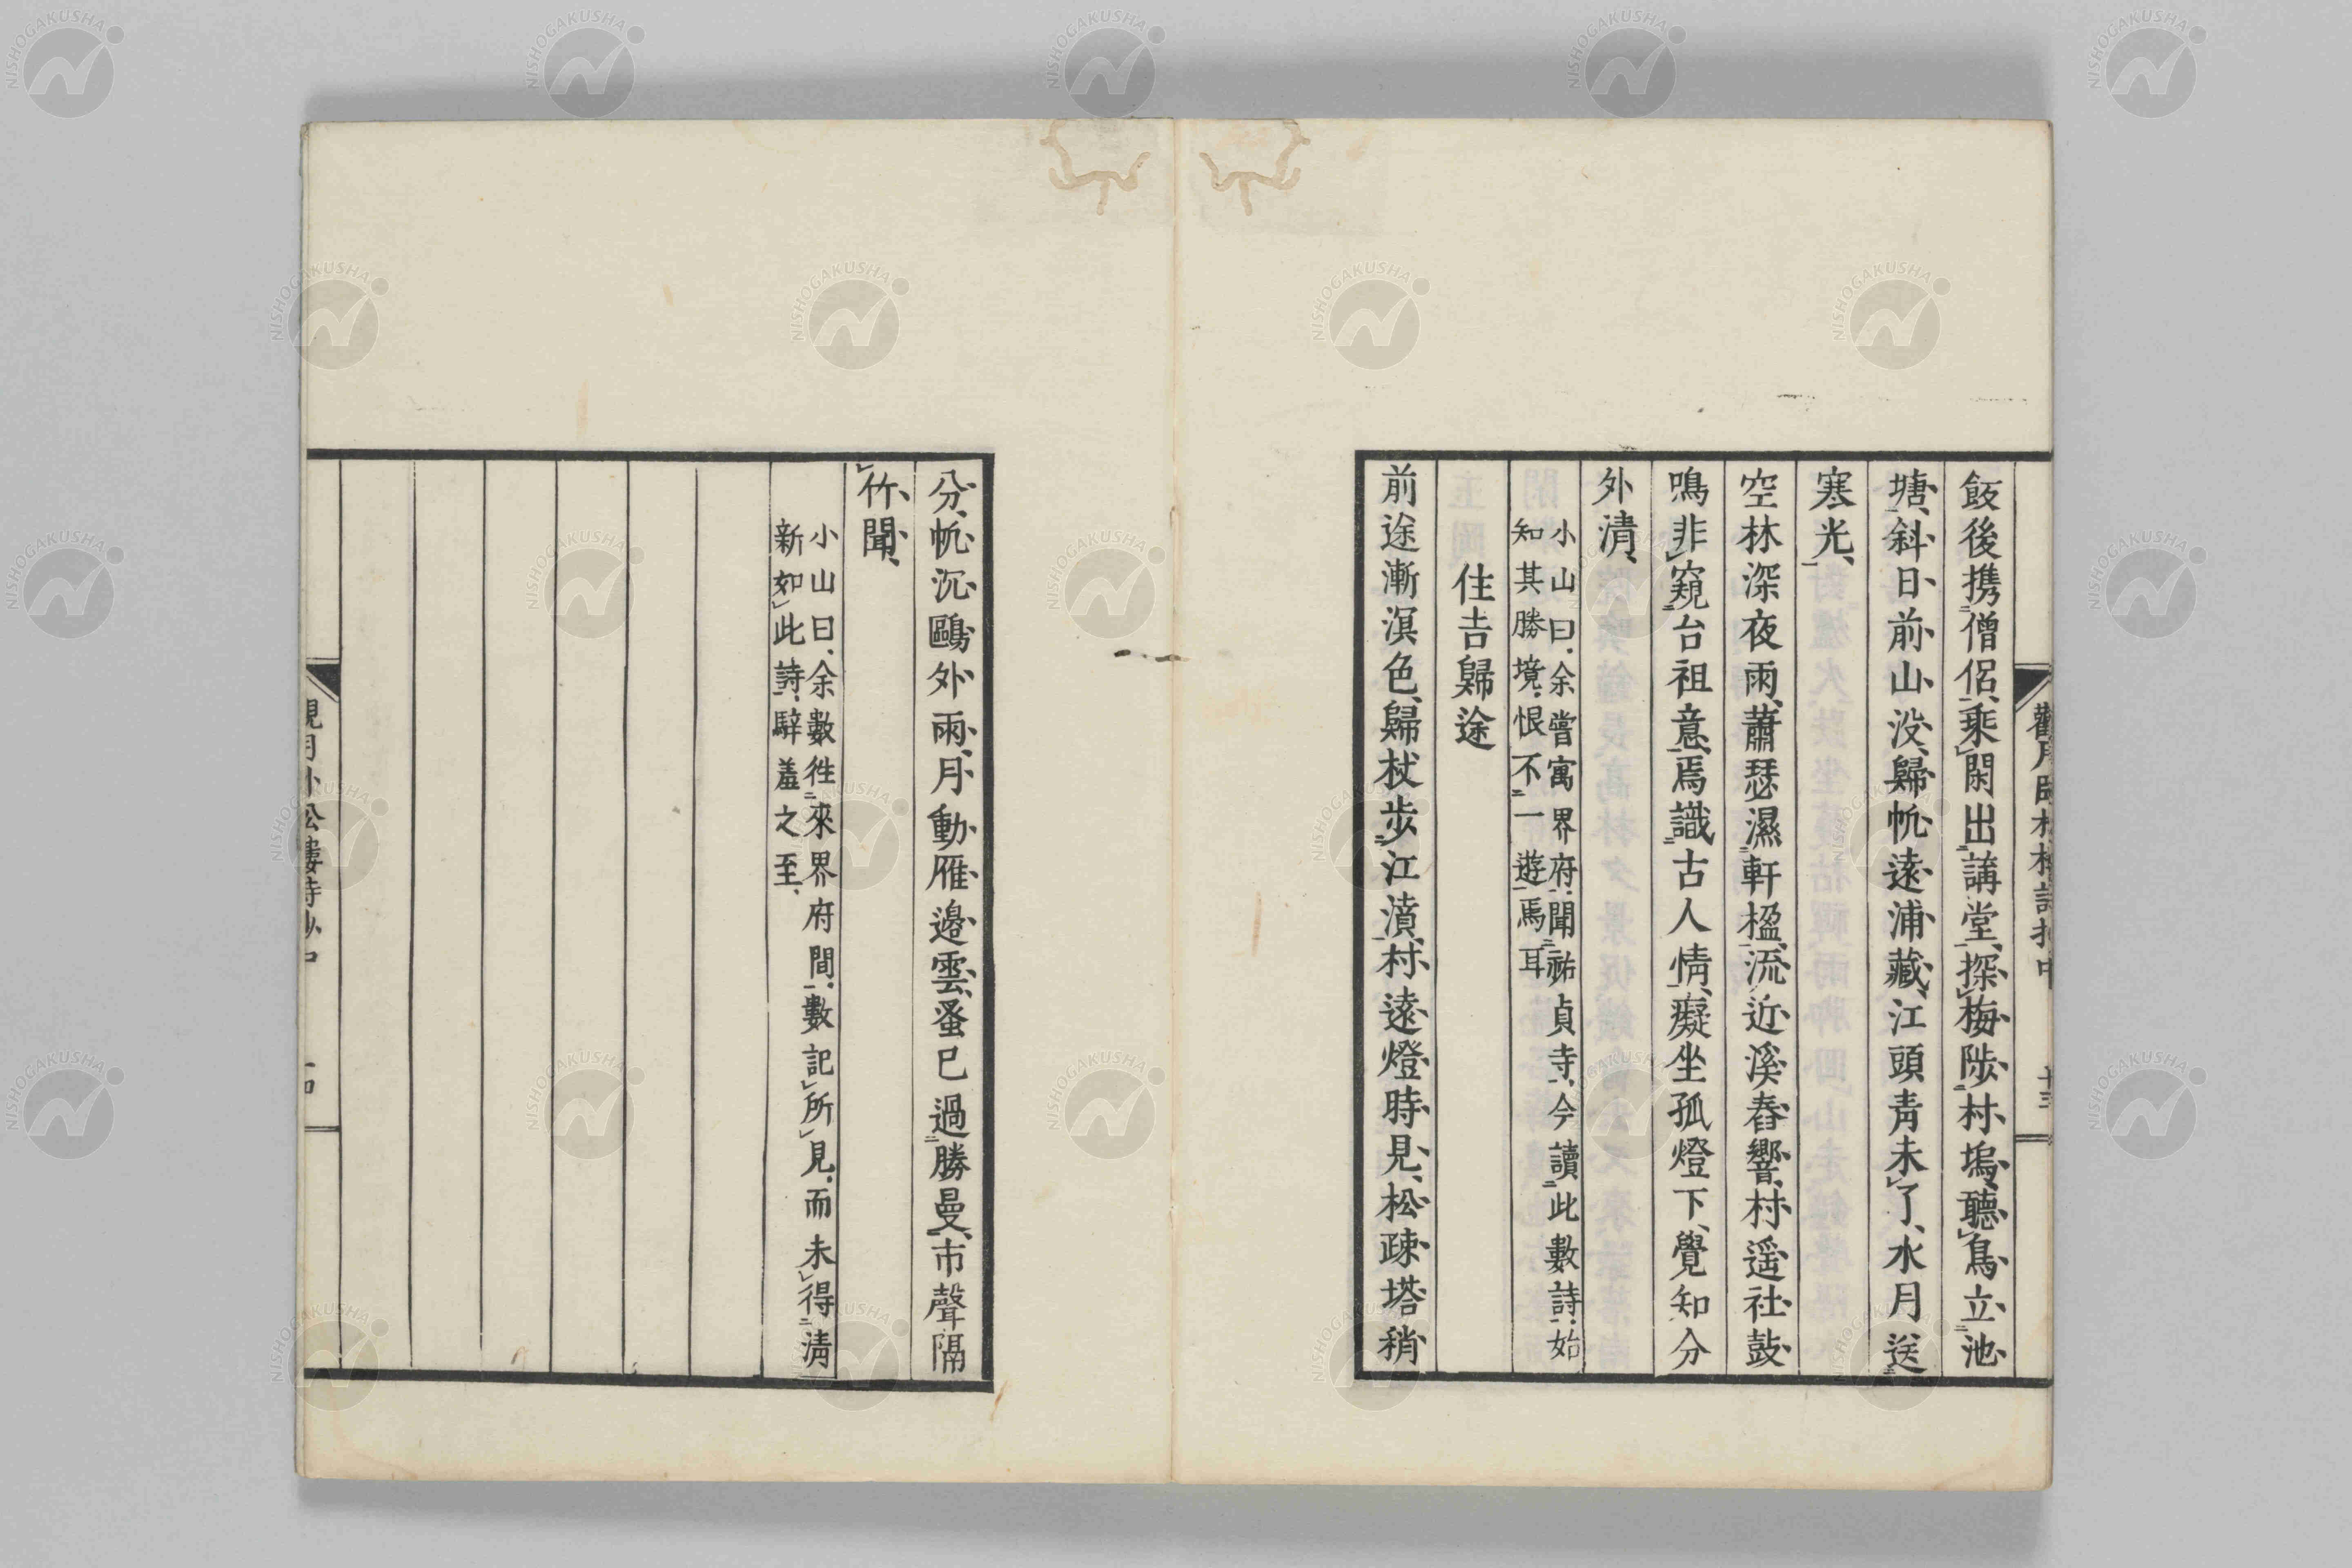 飯後携僧侶、乘閑出講堂、探梅陟村塢、聽鳥立池
塘、斜日前山没、歸帆遠浦藏、江頭青未了、水月送
寒光、
空林深夜雨、蕭瑟濕軒楹、流近溪舂響、村遥社鼓
鳴、非窺台祖意、焉識古人情、癡坐孤燈下、覺知分
外清、
小山曰、余嘗寓界府、聞祐貞寺、今讀此數詩、始
知其勝境、恨不一遊焉耳
住吉歸途
前途漸溟色、歸杖步江濆、村遠燈時見、松疎塔稍
分、帆沉鷗外雨、月動雁邊雲、蚤已過勝曼、市聲隔
竹聞、
小山曰、余數徃來界府間、數記所見、而未得淸
新如此詩、騂羞之至、
NISHOGAKUSHA